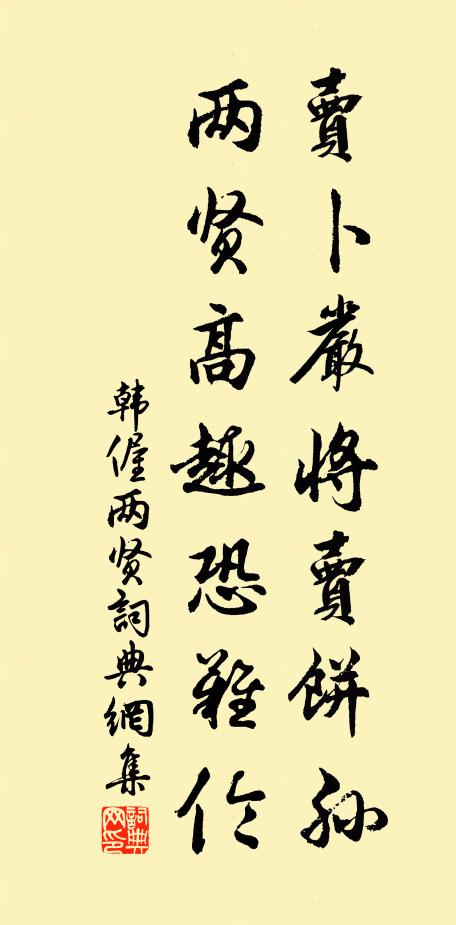 賣卜嚴將賣餅孫
两贤高趣恐難伦
韩偓两贤詞典網集
詞典網印